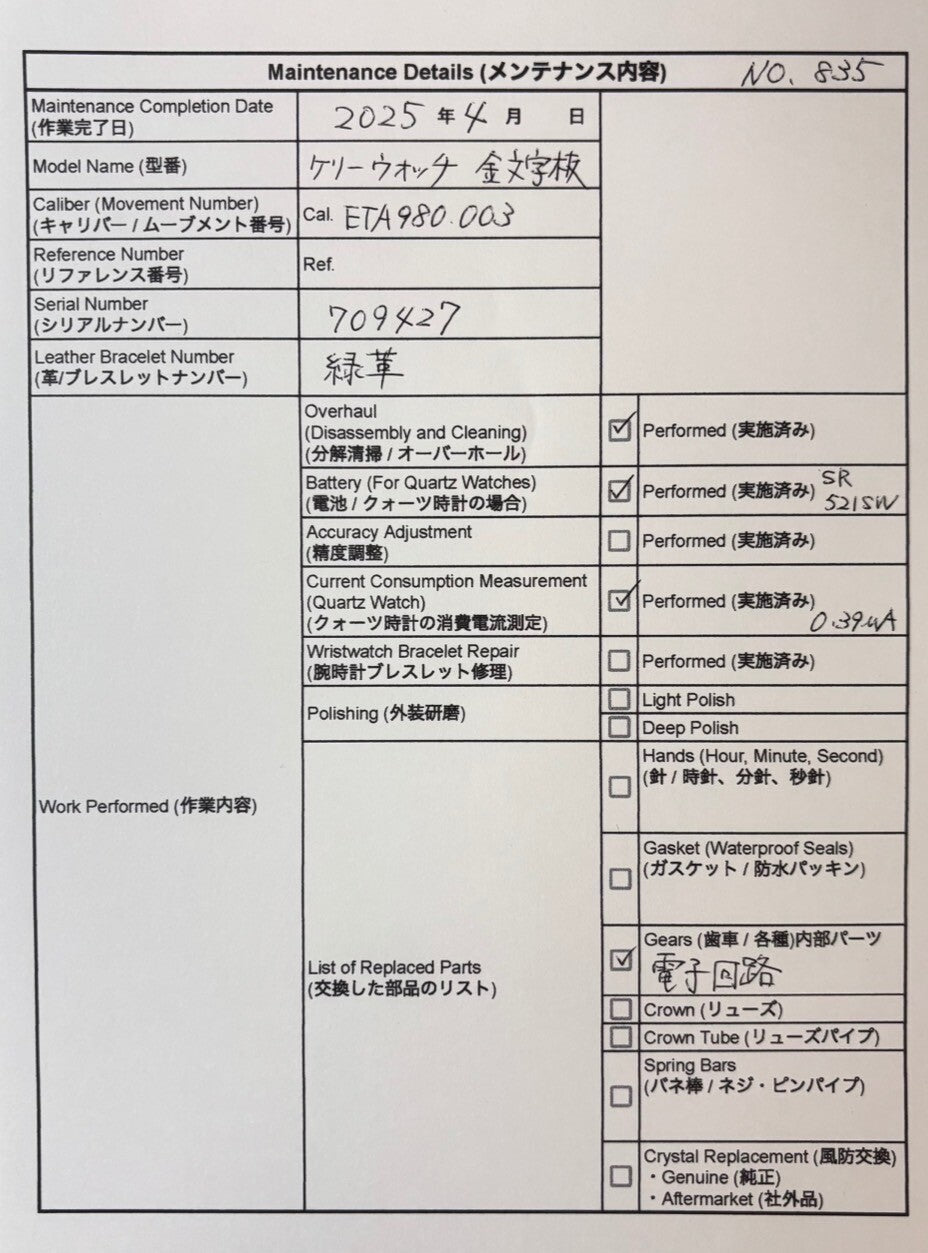 Maintenance Details (メンテナンス内容) NO. 835
Maintenance Completion Date
(作業完了日)
2025 年 4 月 日
Model Name (型番)
ケリーウォッチ 金文字板
Caliber (Movement Number)
(キャリバー / ムーブメント番号)
Cal. ETA980.003
Reference Number
(リファレンス番号)
Ref.
Serial Number
(シリアルナンバー)
709427
Leather Bracelet Number
(革/ブレスレットナンバー)
緑革
Work Performed (作業内容)
Overhaul
(Disassembly and Cleaning)
(分解清掃 / オーバーホール)
Performed (実施済み)
Battery (For Quartz Watches)
(電池 / クォーツ時計の場合)
Performed (実施済み) SR
521SW
Accuracy Adjustment
(精度調整)
Performed (実施済み)
Current Consumption Measurement
(Quartz Watch)
(クォーツ時計の消費電流測定)
Performed (実施済み)
0.39μA
Wristwatch Bracelet Repair
(腕時計ブレスレット修理)
Performed (実施済み)
Polishing (外装研磨)
Light Polish
Deep Polish
List of Replaced Parts
(交換した部品のリスト)
Hands (Hour, Minute, Second)
(針 / 時針、分針、秒針)
Gasket (Waterproof Seals)
(ガスケット / 防水パッキン)
Gears (歯車 / 各種)内部パーツ
電子回路
Crown (リューズ)
Crown Tube (リューズパイプ)
Spring Bars
(バネ棒 / ネジ・ピンパイプ)
Crystal Replacement (風防交換)
・Genuine (純正)
・Aftermarket (社外品)